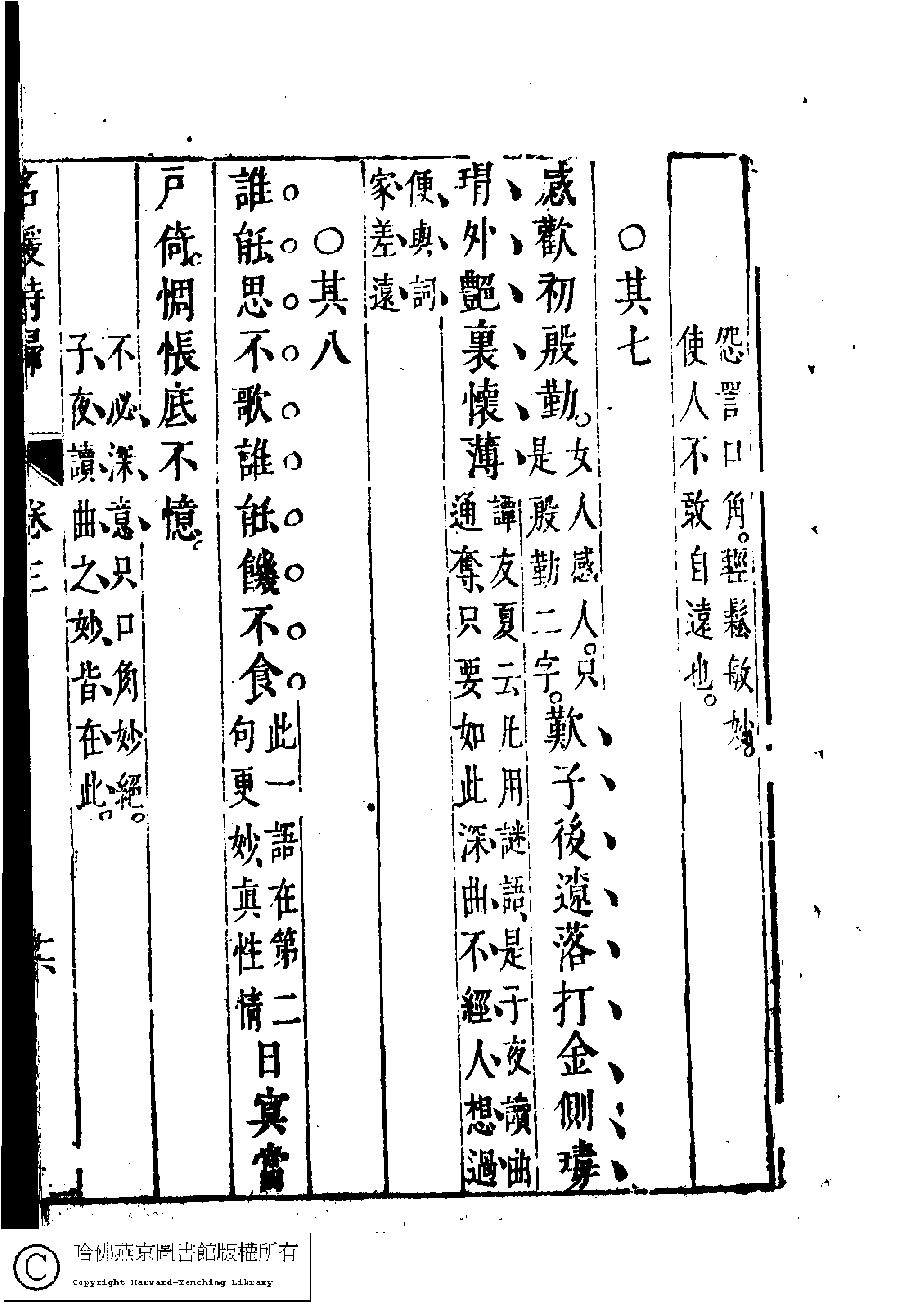 怨詈口角。輕鬆敏妙。
使人不敢自遠也。
○其七
感歡初殷勤。女人感人。只
是殷勤二字。歎子後遼落打金側瑇
瑁外艷裏懷薄譚友夏云凡用謎語、是子夜讀曲
通奪只要如此深曲不經人想過
便與詞
家差遠
○其八
誰能思不歌誰能饑不食此一語在第二
句更妙、真性情日冥當
戶倚。惆悵底不憶。
不必深意只口角妙絕。
子夜讀曲之妙皆在此。
名媛詩歸 卷三
哈佛燕京圖書館版權所有
Copyright Harvard-Yenching Library